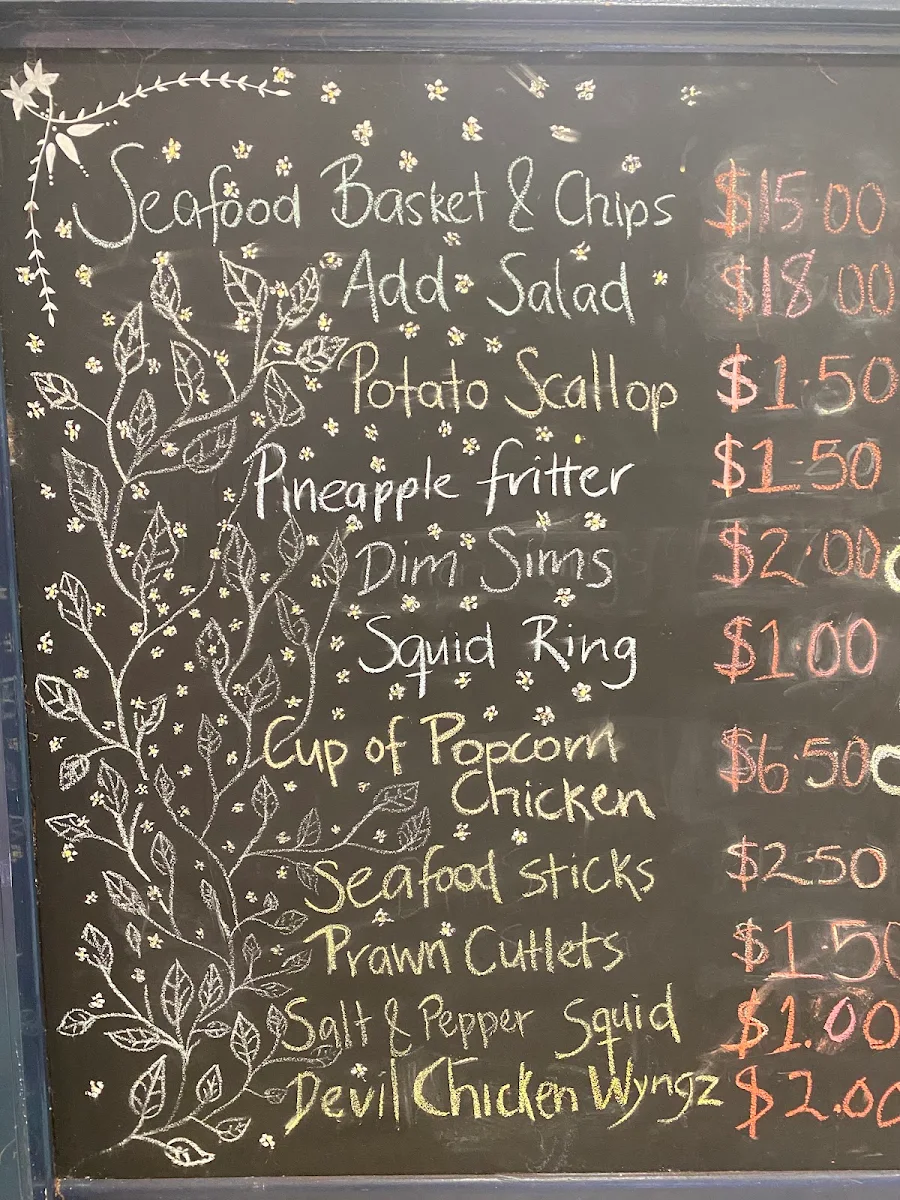 Seafood Basket & Chips $15.00
Add Salad $18.00
Potato Scallop $1.50
Pineapple fritter $1.50
Dim Sims $2.00
Squid Ring $1.00
Cup of Popcorn $6.50
Chicken
Seafood sticks $2.50
Prawn Cutlets $1.50
Salt & Pepper Squid $1.00
Devil Chicken Wyngz $2.00